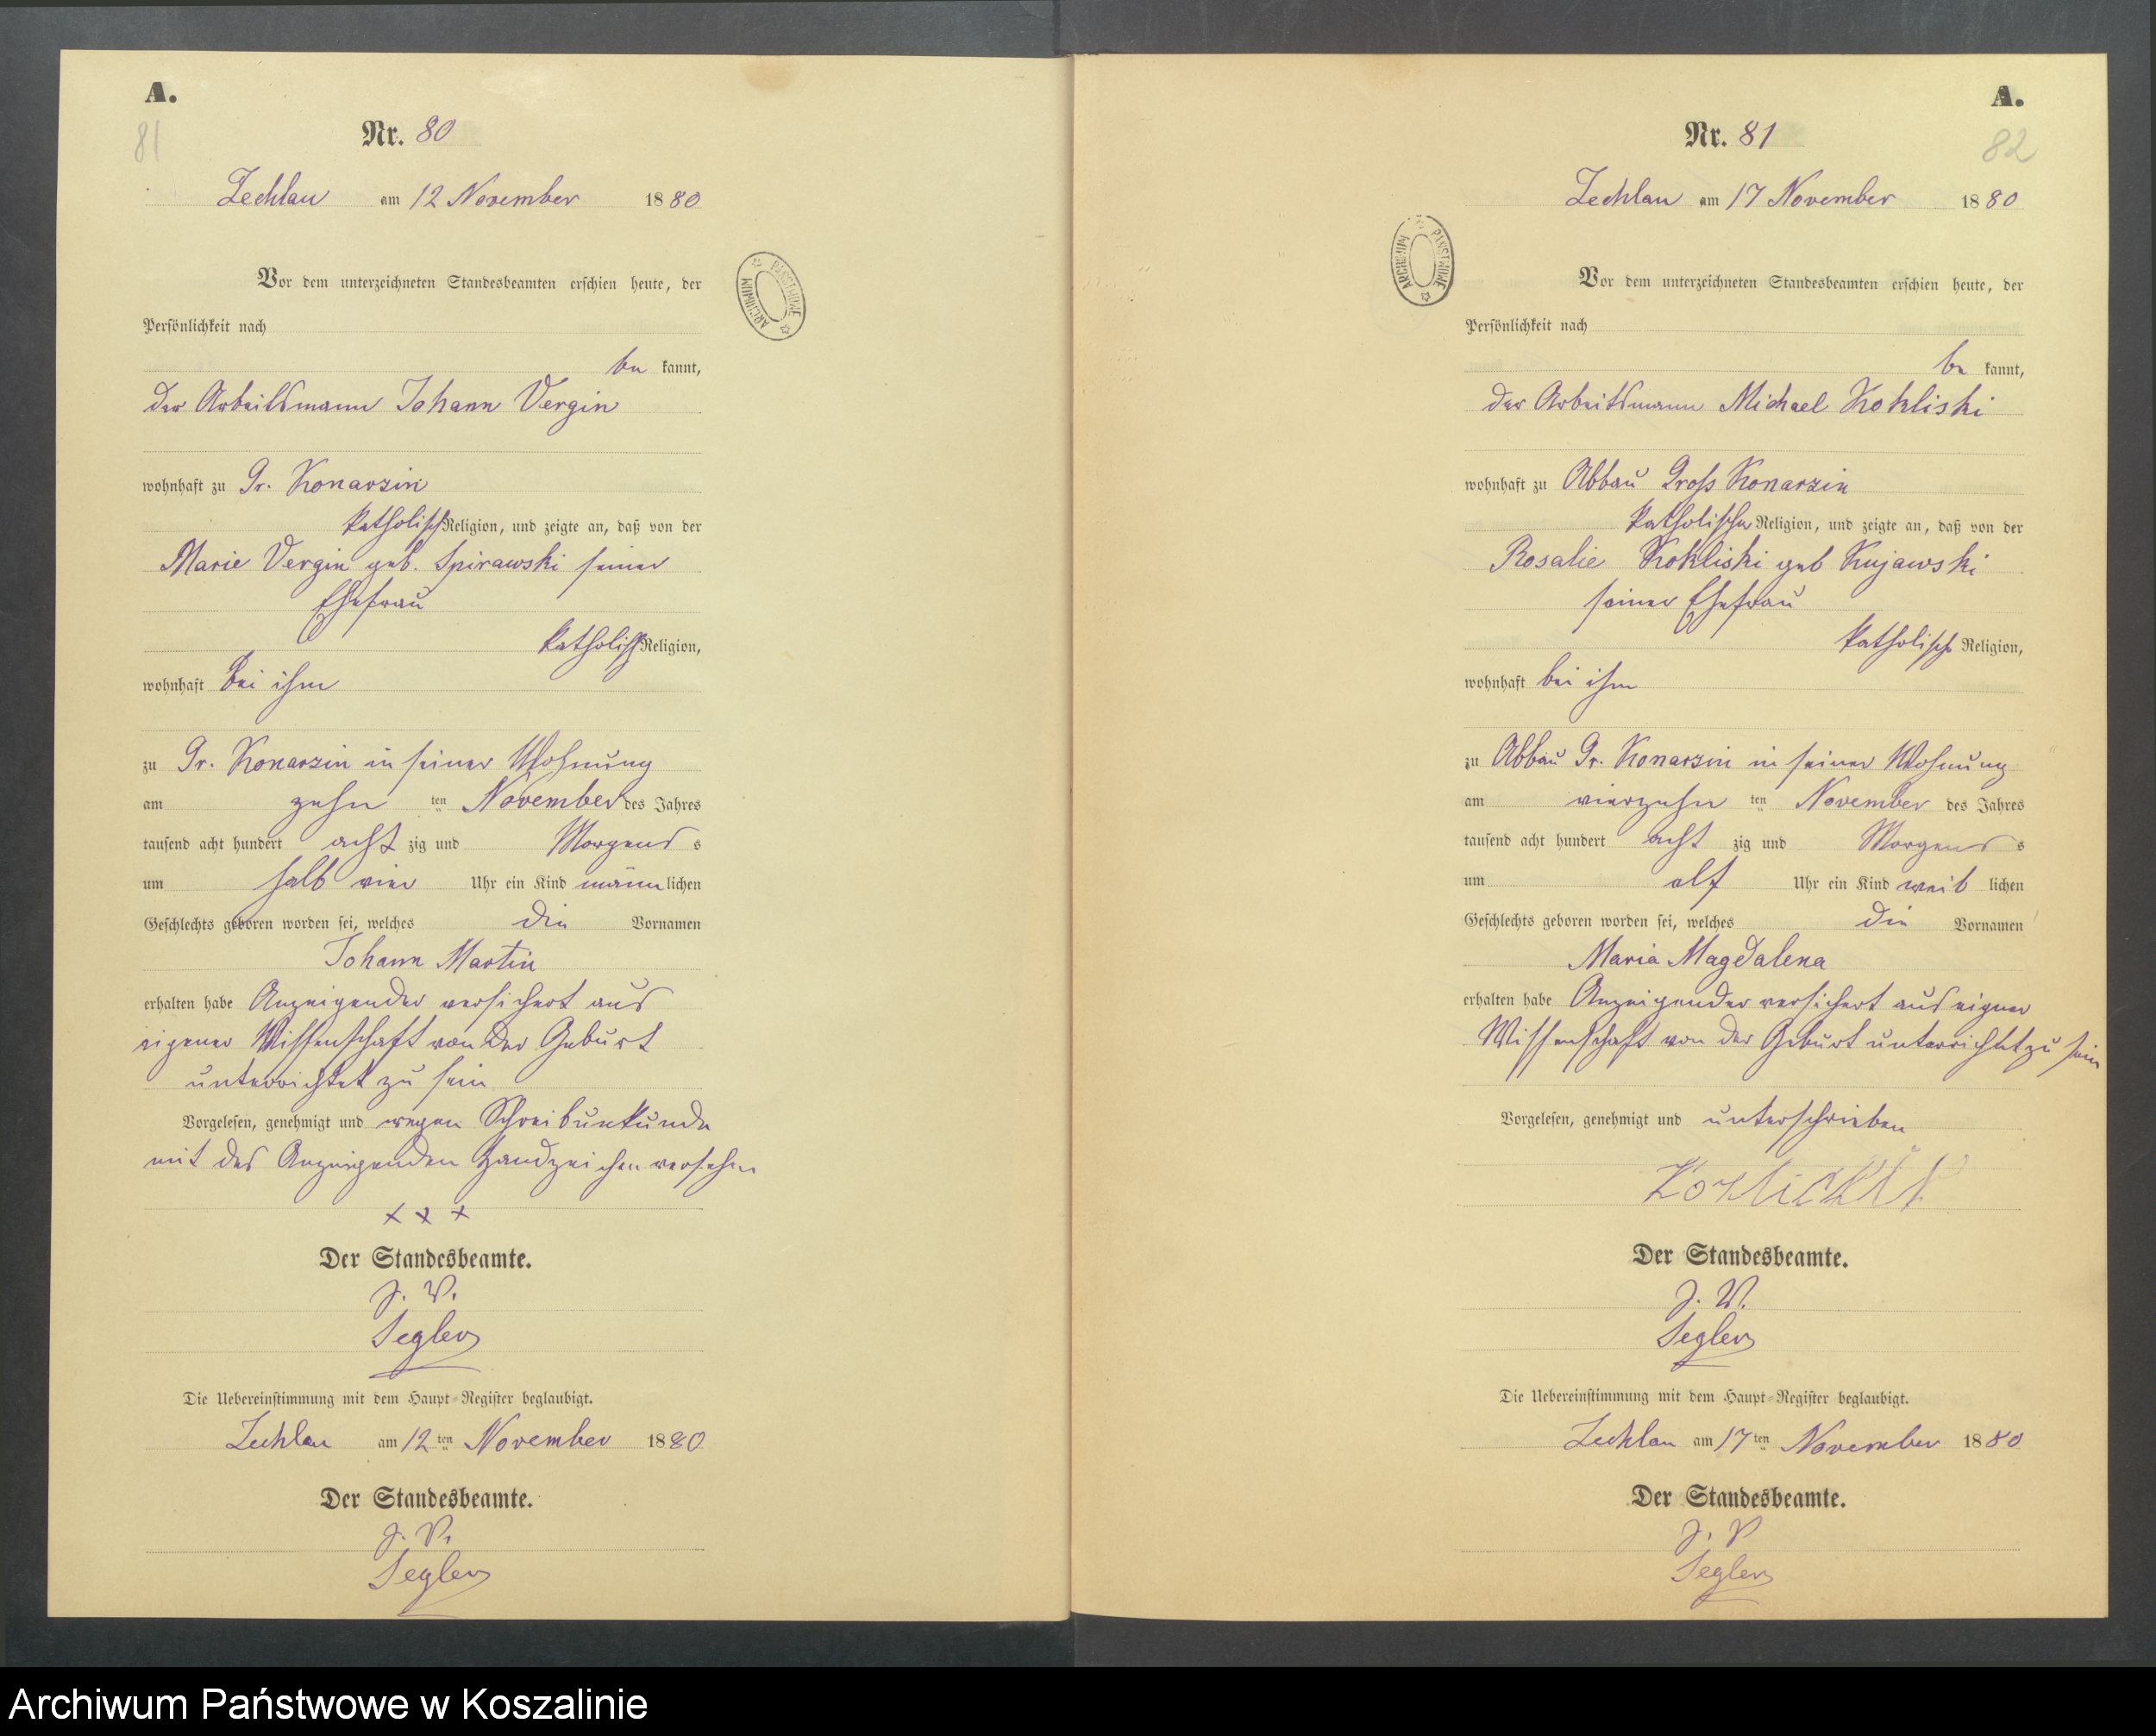 A.
81
Nr. 80
Zechlau am 12 November 1880
Vor dem unterzeichneten Standesbeamten erschien heute, der
Persönlichkeit nach
be kannt,
der Arbeitsmann Johann Vergin
wohnhaft zu Gr. Konarzin
katholisch Religion, und zeigte an, daß von der
Marie Vergin geb. Spirawski seiner
Ehefrau
katholisch Religion,
wohnhaft bei ihm
zu Gr. Konarzin in seiner Wohnung
am zehn ten November des Jahres
tausend acht hundert acht zig und Morgens s
um halb vier Uhr ein Kind männ lichen
Geschlechts geboren worden sei, welches die Vornamen
Johann Martin
erhalten habe Anzeigender versichert aus
eigener Wissenschaft von der Geburt
unterrichtet zu sein
Vorgelesen, genehmigt und wegen Schreibunkunde
mit des Anzeigenden Handzeichen versehen
x x x
Der Standesbeamte.
J. V.
Segler
Die Uebereinstimmung mit dem Haupt-Register beglaubigt.
Zechlau am 12 ten November 1880
Der Standesbeamte.
J. V.
Segler
ARCHIWUM PAŃSTWOWE
A.
82
Nr. 81
Zechlau am 17 November 1880
Vor dem unterzeichneten Standesbeamten erschien heute, der
Persönlichkeit nach
be kannt,
der Arbeitsmann Michael Kokliski
wohnhaft zu Abbau Gross Konarzin
katholischer Religion, und zeigte an, daß von der
Rosalie Kokliski geb Kujawski
seiner Ehefrau
katholisch Religion,
wohnhaft bei ihm
zu Abbau Gr. Konarzin in seiner Wohnung
am vierzehn ten November des Jahres
tausend acht hundert acht zig und Morgens s
um elf Uhr ein Kind weib lichen
Geschlechts geboren worden sei, welches die Vornamen
Maria Magdalena
erhalten habe Anzeigender versichert aus eigner
Wissenschaft von der Geburt unterrichtet zu sein
Vorgelesen, genehmigt und unterschrieben
Der Standesbeamte.
J. V.
Segler
Die Uebereinstimmung mit dem Haupt-Register beglaubigt.
Zechlau am 17 ten November 1880
Der Standesbeamte.
J. V
Segler
ARCHIWUM PAŃSTWOWE
Archiwum Państwowe w Koszalinie